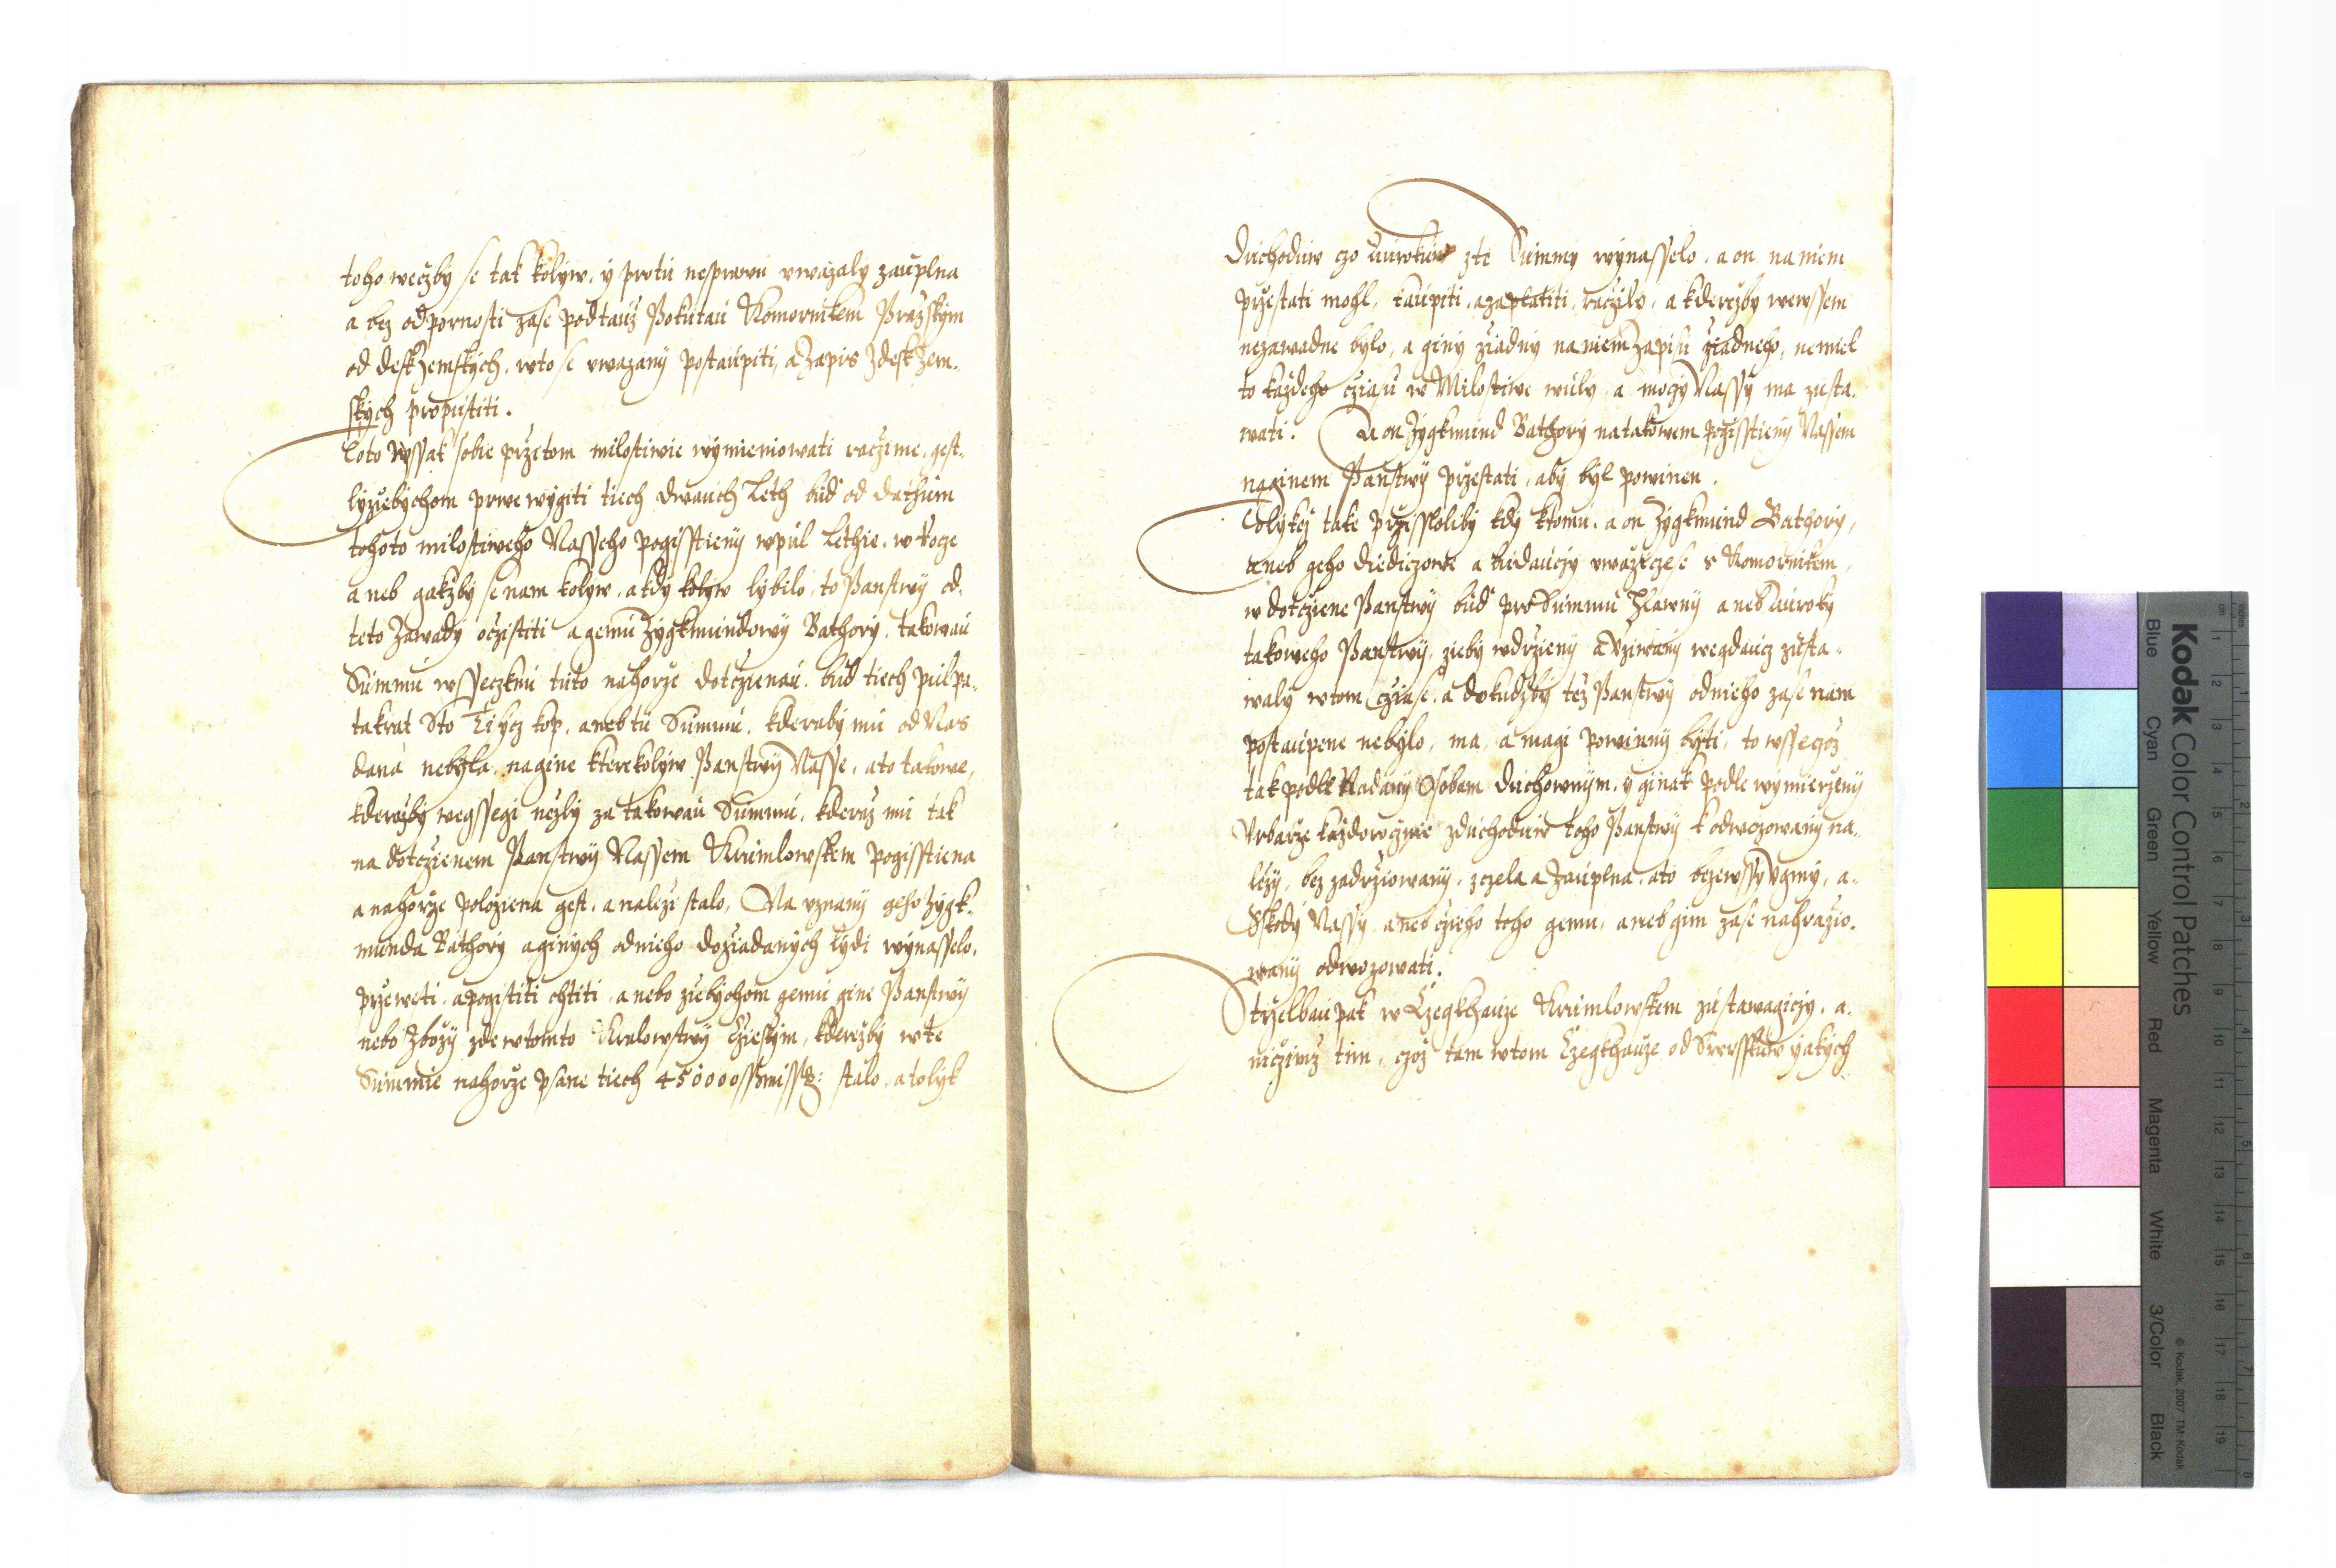 toho weczby se tak kolyw, y protu neprawu vwazaly zauplna
a bez odpornosti zase podtauz Pokutau Komornikem Prazskym
od desk Zemskych, wto se vwazany postaupiti, a Zapis Zdesk Zem-
skych propustiti.
Toto wssak sobie przetom milostiwie wymieniowati raczime, gest-
lyzebychom prwe wygiti tiech dwauch Leth bud od dathum
tohoto milostiweho Nasseho pogisstieny wpul Lethie, w Roce
aneb gakzby se nam kolyw, a kdy kolyw lybilo, to Panstwy od
teto Zawady oczistiti a gemu Zygkmundowy Bathory, takowau
Summu wsseczknu tuto nahorze dotczenau, bud tiech pulpa-
takrat Sto Tisycz kop, aneb tu Summu, kteraby mu od Nas
dana nebyla, na gine kterekolyw Panstwy Nasse, a to takowe,
kderezby wegssegi nezly za takowau Summu, kderaz mu tak
na dotczienem Panstwy Nassem Krumlowskem pogisstiena
a nahorze polozena gest, a nalezi stalo, Na vznany geho Zygk-
munda Bathory a ginych odnieho doziadanych Lydi wynasselo,
przewesti, a pogistiti chtiti, a nebo ziebychom gemu gine Panstwy
nebo Zbozy zde wtomto Kralowstwy Czieskym, kderezby w te
Summie nahorze psane tiech 450000 ss miss: stalo, a tolyk
Duchoduw czo Aurokuw zte Summy wynasselo, a on na niem
przestati mohl, kaupiti, a zaplatiti, raczyly, a kderezby wewssem
nezawadne bylo, a giny ziadny na niem Zapisu ziadneho, nemiel
to kazdeho cziasu w Milostiwe wuly, a mogy Nassy ma zusta-
wati. A on Zygkmund Bathory na takowem pogisstieny Nassem
na ginem Panstwy przestati, aby byl powinen.
Tolykez take przissloliby kdy ktomu, a on Zygkmund Bathory,
aneb geho Diediczowe a budauczy vwazicze se s Komornikem,
w dotcziene Panstwy bud pro Summu Hlawny aneb Auroky
takoweho Panstwy, zieby wdrzieny a Vziwany wegdaucz zusta-
waly wtom cziase, a dokudzby tez Panstwy odnieho zase nam
postaupene nebylo, ma, a magi powinny byti, to wssecgoz
tak podle Nadany Osobam duchownym, y ginak podle wymierzeny
Vrbarze kazdorocznie zduchoduw toho Panstwy k odwozowany na-
lezy, bez zadrziowany, zczela a Zauplna, a to bezewssy Vgmy, a-
Sskody Nassy, aneb czieho toho gemu, aneb gim zase nahrazio-
wany odwozowati.
Strzelbau pak w Czegkhauze Krumlowskem zustawagiczy, a-
niczimz tim, czoz tam wtom Czegkhauze od Swrsskuw yakych